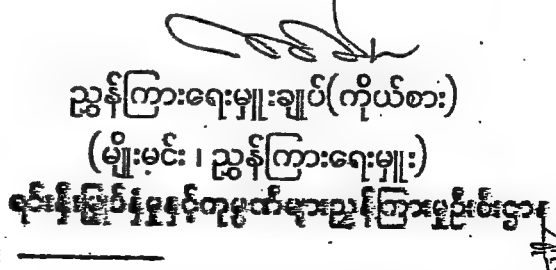 ညွှန်ကြားရေးမှူးချုပ်(ကိုယ်စား)
(မျိုးမင်း ၊ ညွှန်ကြားရေးမှူး)
ရင်းနှီးမြှုပ်နှံမှုနှင့်ကုမ္ပဏီများညွှန်ကြားမှုဦးစီးဌာန